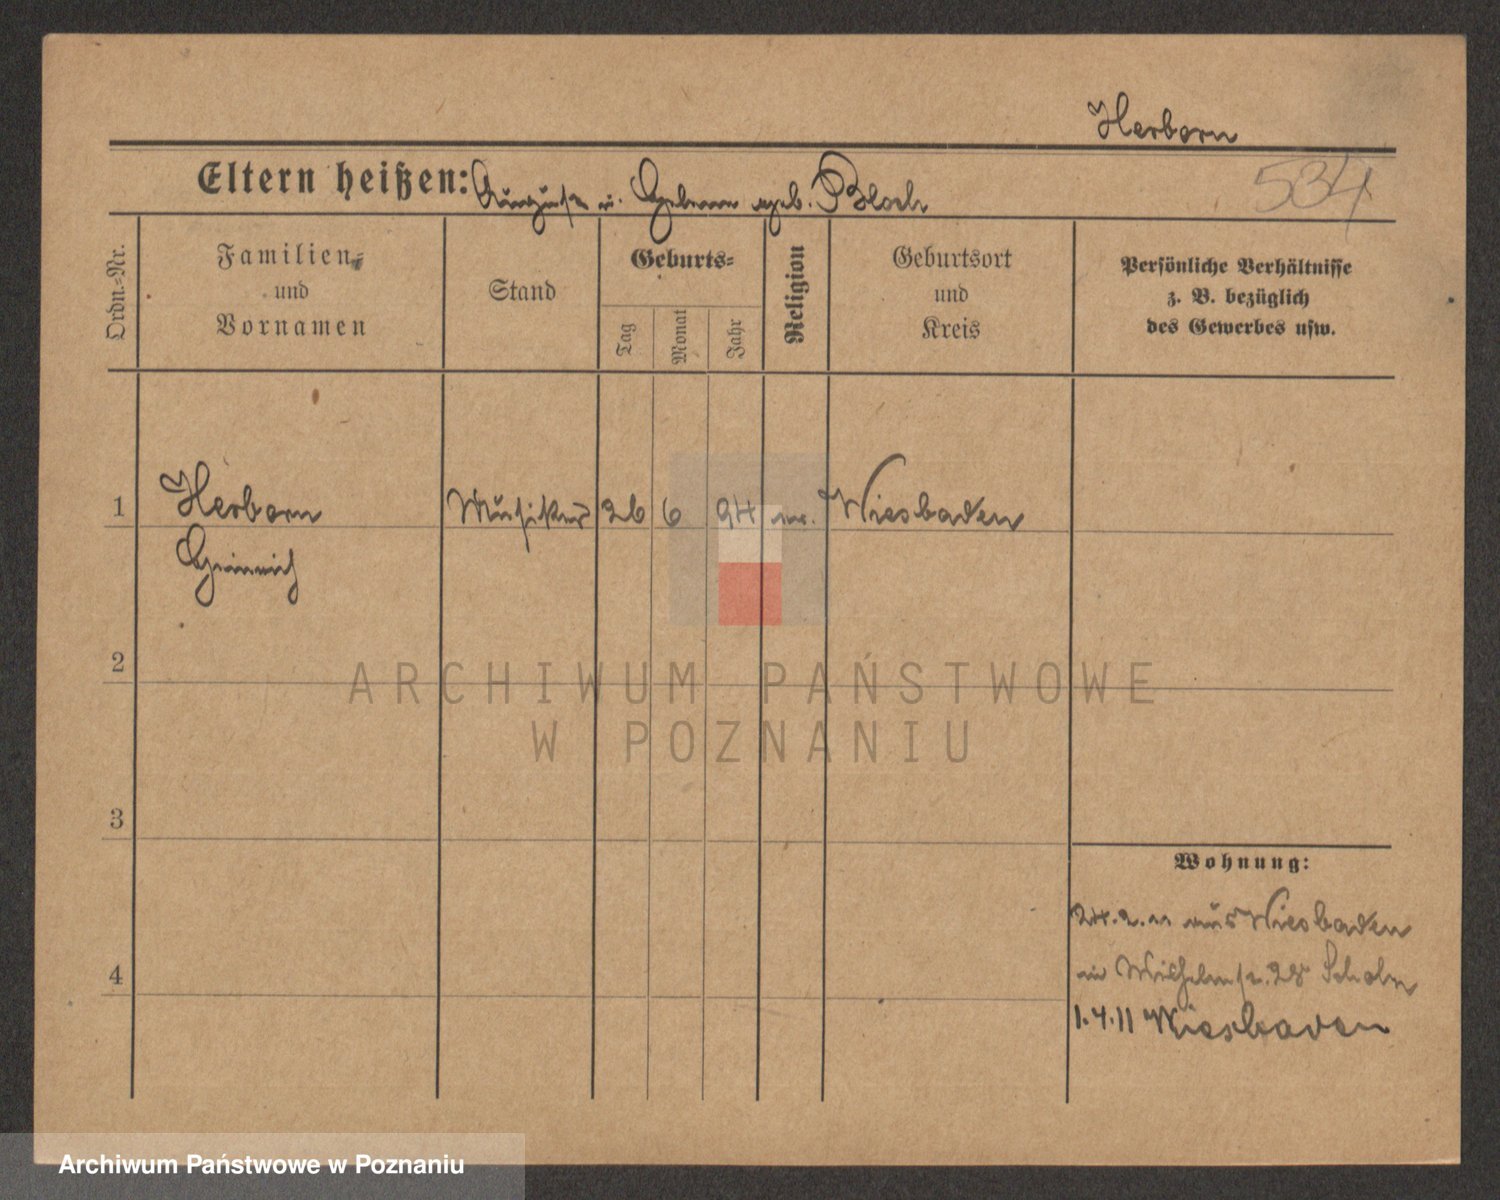 Herborn
534
Eltern heißen: Auguste u. Helene geb. Bloch
Ordn.=Nr.
Familien=
und
Vornamen
Stand
Geburts=
Tag
Monat
Jahr
Religion
Geburtsort
und
Kreis
Persönliche Verhältnisse
z. B. bezüglich
des Gewerbes usw.
1 Herborn Musiker 26 6 94 ev. Wiesbaden
Heinrich
2
3
4
Wohnung:
24.2.11 aus Wiesbaden
in Wilhelmstr. 28 Scholz
1.4.11 Wiesbaden
ARCHIWUM PAŃSTWOWE
W POZNANIU
Archiwum Państwowe w Poznaniu